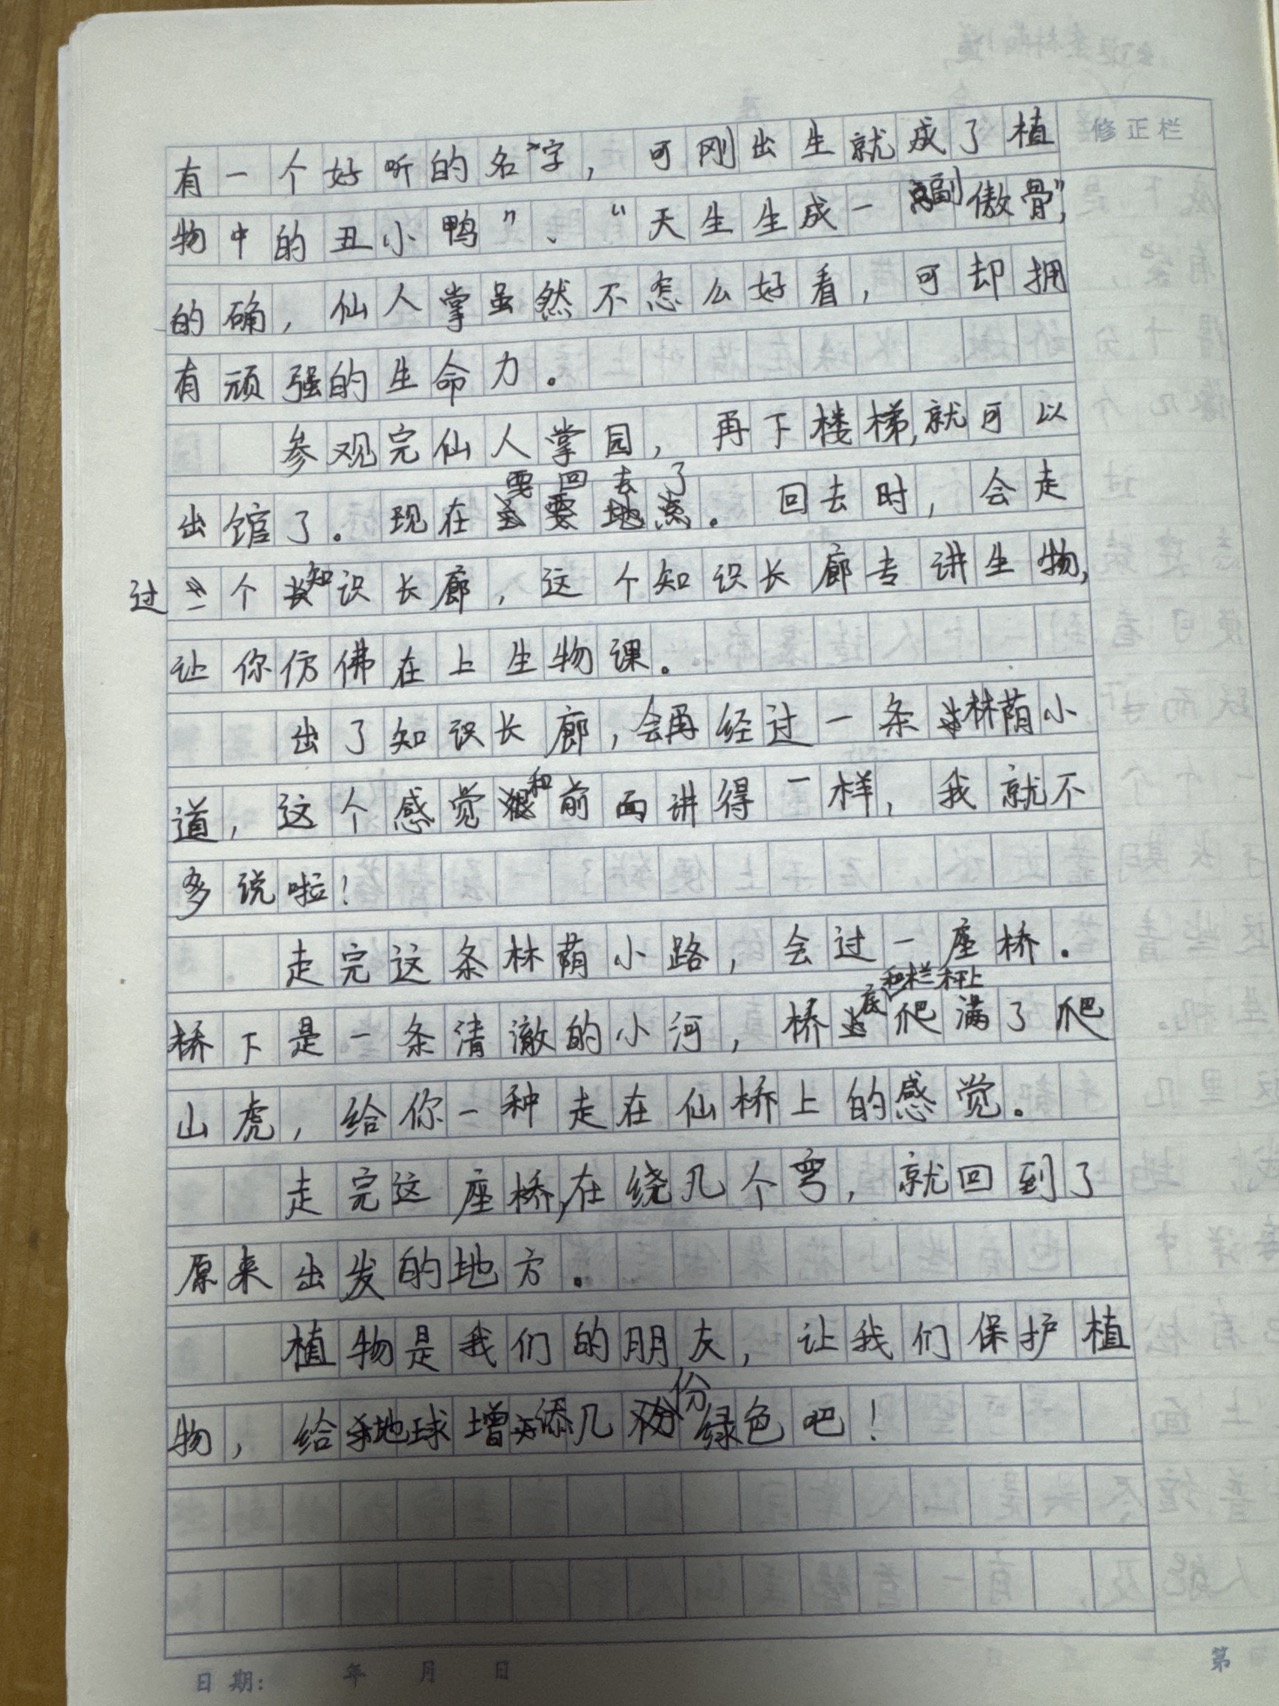 修正栏
有一个好听的名字，可刚出生就成了植
物中的丑小鸭”、“天生生成一副傲骨”，
的确，仙人掌虽然不怎么好看，可却拥
有顽强的生命力。
参观完仙人掌园，再下楼梯，就可以
出馆了。现在要回去了。回去时，会走
过一个知识长廊，这个知识长廊专讲生物，
让你仿佛在上生物课。
出了知识长廊，会再经过一条林荫小
道，这个感觉和前面讲得一样，我就不
多说啦！
走完这条林荫小路，会过一座桥。
桥下是一条清澈的小河，桥底和栏杆上爬满了爬
山虎，给你一种走在仙桥上的感觉。
走完这座桥，在绕几个弯，就回到了
原来出发的地方。
植物是我们的朋友，让我们保护植
物，给地球增添几份绿色吧！
日期： 年 月 日
第